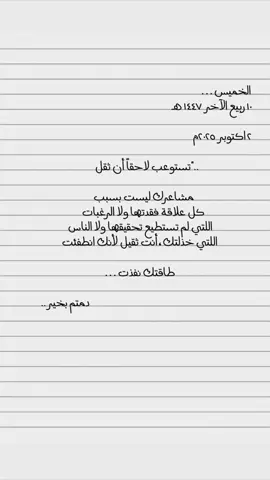 الخميس ...
١٠ ربيع الآخر ١٤٤٧ هـ
٢ اكتوبر ٢٠٢٥م
.."تستوعب لاحقاً أن ثقل
مشاعرك ليست بسبب
كل علاقة فقدتها ولا الرغبات
اللتي لم تستطيع تحقيقها ولا الناس
اللتي خذلتك ، أنت ثقيل لأنك انطفئت
طاقتك نفذت ...
دمتم بخير ..